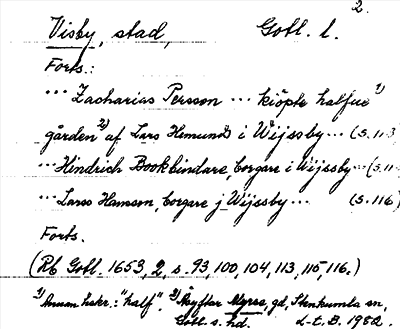 2.
Visby, stad, Gotl. l.
Forts.:
... Zacharias Persson ... kiöpte halfue 1)
gården 2) af Lars Hemund i Wijssby ... (s. 113
... Hindrich Bookbindare, borgare i Wijssby ... (s. 11
... Larss Hanson, borgare j Wijssby ... (s. 116)
Forts.
(Rb Gotl. 1653, 2, s. 93, 100, 104, 113, 115, 116.)
1) Annan hskr.: "half". 2) Åsyftar Myrse, gd, Stenkumla sn,
Gotl. s. hd. L-t. B. 1982.